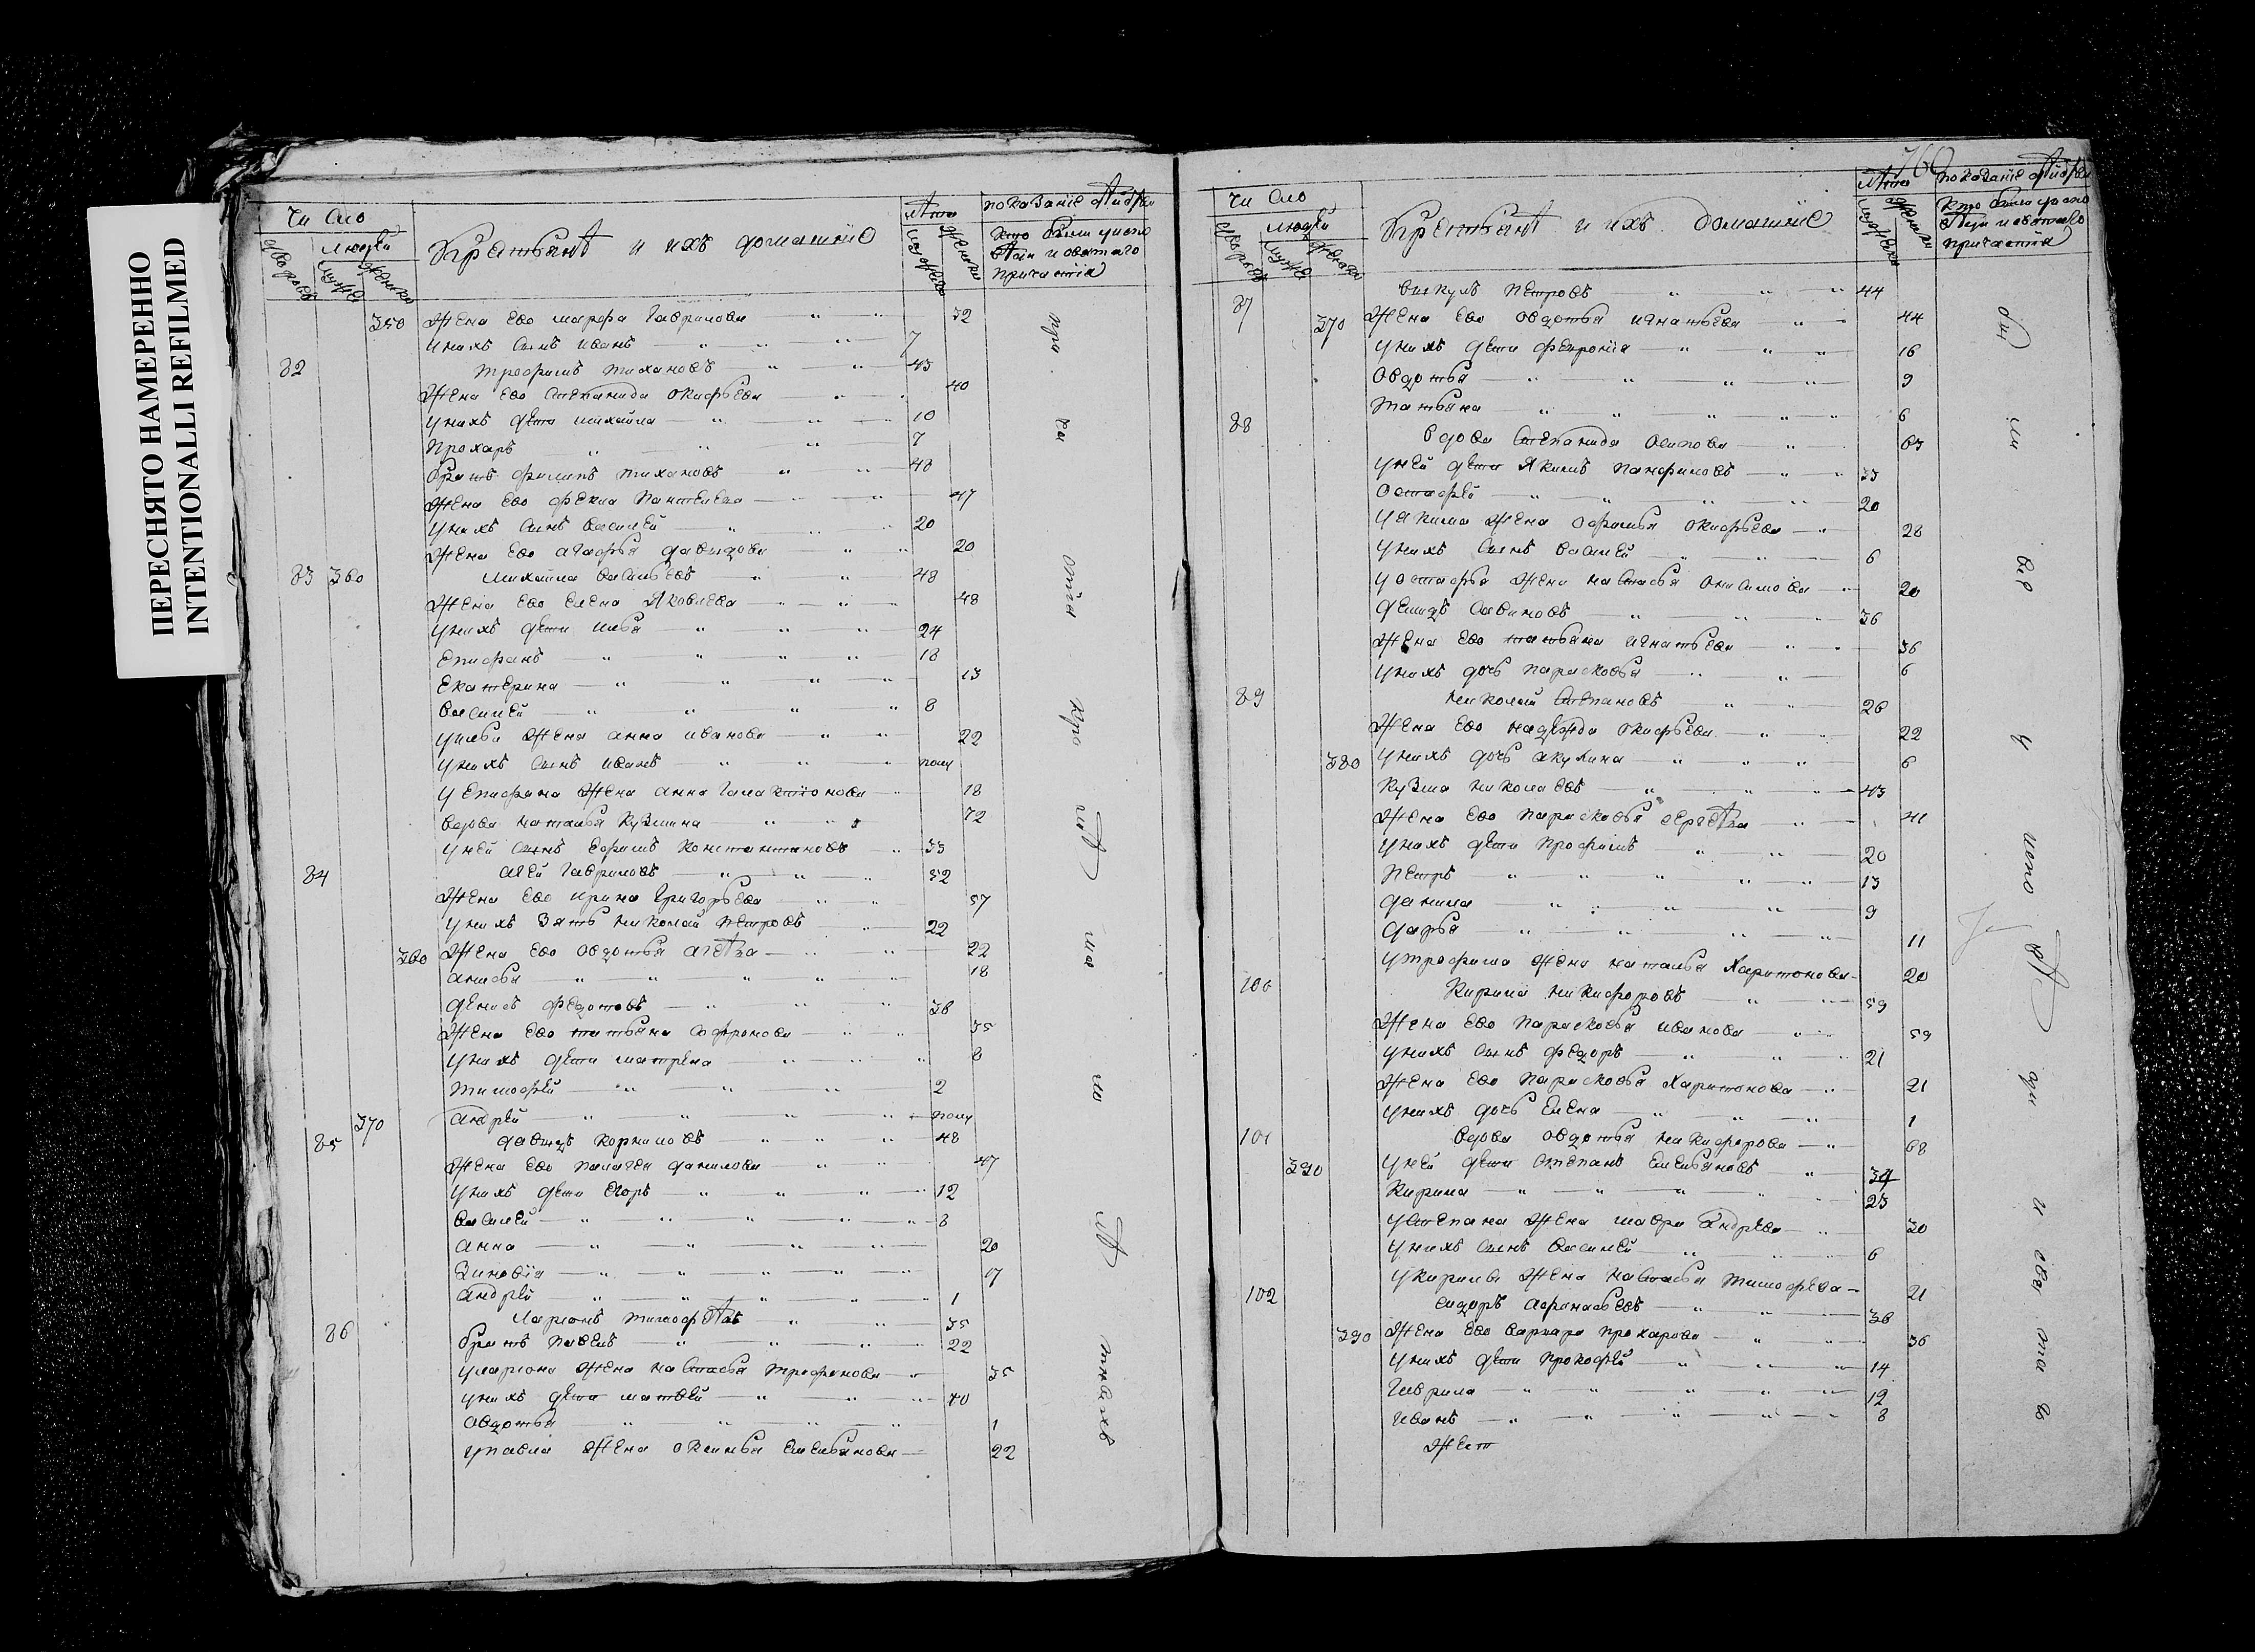 ПЕРЕСНЯТО НАМЕРЕННО
INTENTIONALLI REFILMED
Чи Сло
Людей
дворовъ мужес женски
Крестьянъ и ихъ домашние
лѣта
мужеска женски
показание действ
кто были у испо
веди и святаго
причастия
350 Жена ево марфа Гаврилова 32
у нихъ Сынъ иванъ 7
82 трофимъ тихановъ 43
Жена ево Степанида окифьева 40
у нихъ дети михайла 10
Прохаръ 7
братъ филипъ тихановъ 48
Жена ево фекла Пантелеева 47
у нихъ Сынъ василей 20
Жена ево агафья давыдова 20
83 360 михайла васильевъ 48
Жена ево Елена Яковлева 48
у нихъ дети илья 24
Епифанъ 18
Екатерина 13
василей 8
у ильи Жена анна иванова 22
у нихъ Сынъ иванъ полу
у Епифана Жена анна Галактионова 18
вдова наталья кузмина 72
у ней Сынъ Ефимъ константиновъ 33
84 агей Гавриловъ 52
Жена ево ирина Григорьева 57
у нихъ зять николай петровъ 22
360 Жена ево овдотья агеева 22
анисья 18
денисъ федотовъ 38
Жена ево татьяна софронова 35
у нихъ дети матрена 8
тимофей 2
370 андрей полу
85 давыдъ корниловъ 48
Жена ево палагея данилова 47
у нихъ дети Егоръ 12
василей 8
анна 20
Зиновия 17
андрей 1
86 Ларионъ тимофеевъ 35
братъ павелъ 22
у лариона Жена настасья трофимова 35
у нихъ дети матвей 10
овдотья 1
у павла Жена оксинья Емельянова 22
760
Чи Сло
Людей
дворовъ мужес женски
Крестьянъ и ихъ домашние
лѣта
мужеска женски
показание действ
кто были у испо
веди и святаго
причастия
87 викулъ петровъ 44
370 Жена ево овдотья игнатьева 44
у нихъ дети феврония 16
овдотья 9
татьяна 6
88 вдова Степанида осипова 63
у ней дети Якимъ панфиловъ 33
остафей 20
у якима Жена офимья окифьева 28
у нихъ Сынъ василей 6
у остафья Жена настасья онисимова 20
демидъ савиновъ 36
Жена ево татьяна игнатьева 36
у нихъ дочь парасковья 6
89 николай Степановъ 26
Жена ево надежда окифьева 22
380 у нихъ дочь акулина 6
кузма николаевъ 43
Жена ево парасковья сергеева 41
у нихъ дети трофимъ 20
петръ 13
данила 9
дарья 11
у трофима Жена наталья Харитонова 20
100 кирила никифоровъ 59
Жена ево парасковья иванова 59
у нихъ Сынъ федоръ 21
Жена ево парасковья Харитонова 21
у нихъ дочь Елена 1
101 вдова овдотья никифорова 68
390 у ней дети Степанъ Емельяновъ 34
кирила 23
у Степана Жена мавра андреева 30
у нихъ Сынъ василей 6
у кирилы Жена настасья тимофеева 21
102 сидоръ афанасьевъ 38
390 Жена ево варвара прохарова 36
у нихъ дети прокофей 14
Гаврила 12
иванъ 8
Жен